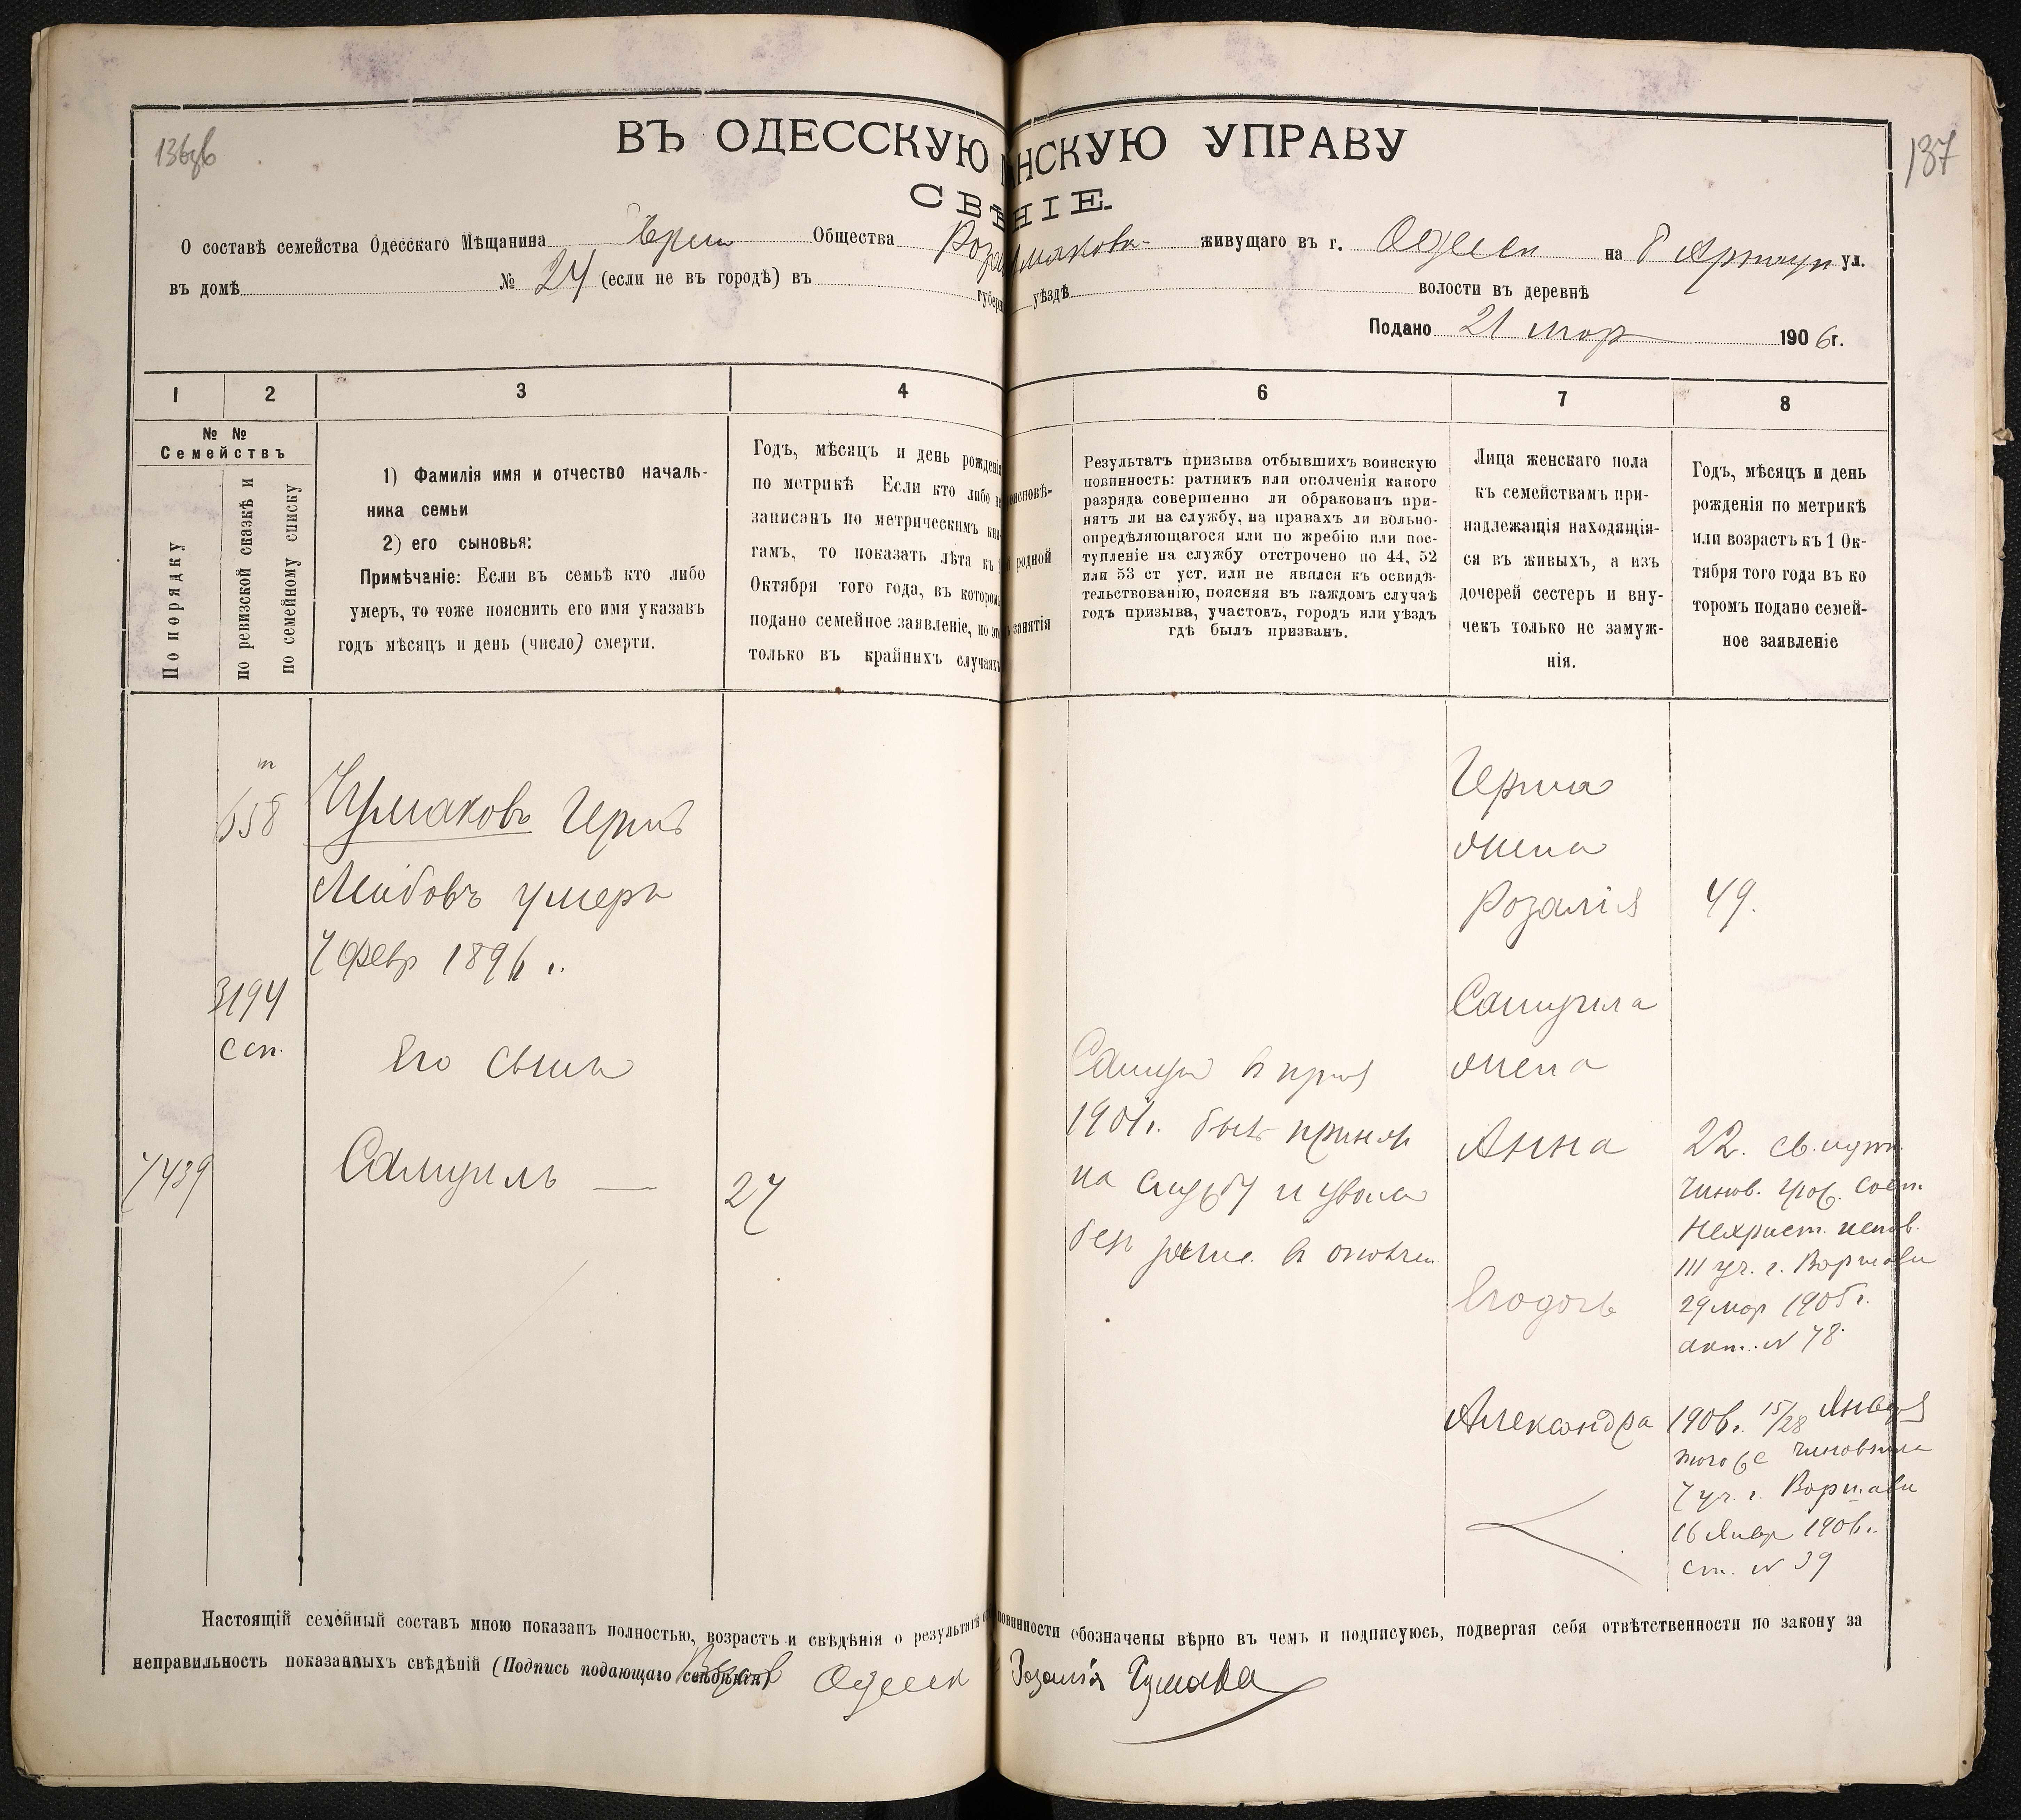 136об
137
ВЪ ОДЕССКУЮ НСКУЮ УПРАВУ
СВѢНІЕ.
О составѣ семейства Одесскаго Мѣщанина Евреи Общества Роза Чумакова живущаго въ г. Одесса на Б Арнаут ул.
въ домѣ № 24 (если не въ городѣ) въ губерн уѣздѣ волости въ деревнѣ
Подано 21 мар 1906 г.
1 2 3 4 6 7 8
№ №
Семействъ
По порядку
по ревизской сказкѣ и
по семейному списку
1) Фамилія имя и отчество началь-
ника семьи
2) его сыновья:
Примѣчаніе: Если въ семьѣ кто либо
умеръ, то тоже пояснить его имя указавъ
годъ мѣсяцъ и день (число) смерти.
Годъ, мѣсяцъ и день рожденія
по метрикѣ Если кто либо не
записанъ по метрическимъ кни-
гамъ, то показать лѣта къ 1
Октября того года, въ которомъ
подано семейное заявленіе, но это
только въ крайнихъ случаяхъ
оисновѣ-
родной
занятія
Результатъ призыва отбывшихъ воинскую
повинность: ратникъ или ополченія какого
разряда совершенно ли обракованъ при-
нятъ ли на службу, на правахъ ли вольно-
опредѣляющагося или по жребію или пос-
тупленіе на службу отстрочено по 44, 52
или 53 ст уст. или не явился къ освидѣ-
тельствованію, поясняя въ каждомъ случаѣ
годъ призыва, участокъ, городъ или уѣздъ
гдѣ былъ призванъ.
Лица женскаго пола
къ семействамъ при-
надлежащія находящія-
ся въ живыхъ, а изъ
дочерей сестеръ и вну-
чекъ только не замуж-
нія.
Годъ, мѣсяцъ и день
рожденія по метрикѣ
или возрастъ къ 1 Ок-
тября того года въ ко
торомъ подано семей-
ное заявленіе
658
Чумаковъ Герш
Лейбовъ умеръ
7 февр 1896 г.
3194
Его сынъ
7439
Самуилъ — 27
1901г. былъ принят
на службу и увол
Герша
жена
Розалія 49.
Самуила
жена
Анна
22.
Нехрист. испов.
III уч. г. Варшавы
29 мар 1905 г.
акт. N 78
Его дочь
Александра
1906г. 15/28 Января
того же чиновника
7 уч. г. Варшавы
16 Январ 1906г.
N 39
Настоящій семейный составъ мною показанъ полностью, возрастъ и свѣдѣнія о результатѣ повинности обозначены вѣрно въ чемъ и подписуюсь, подвергая себя отвѣтственности по закону за
неправильность показанныхъ свѣдѣній (Подпись подающаго свѣдѣнія) Одесса Розалія Чумакова